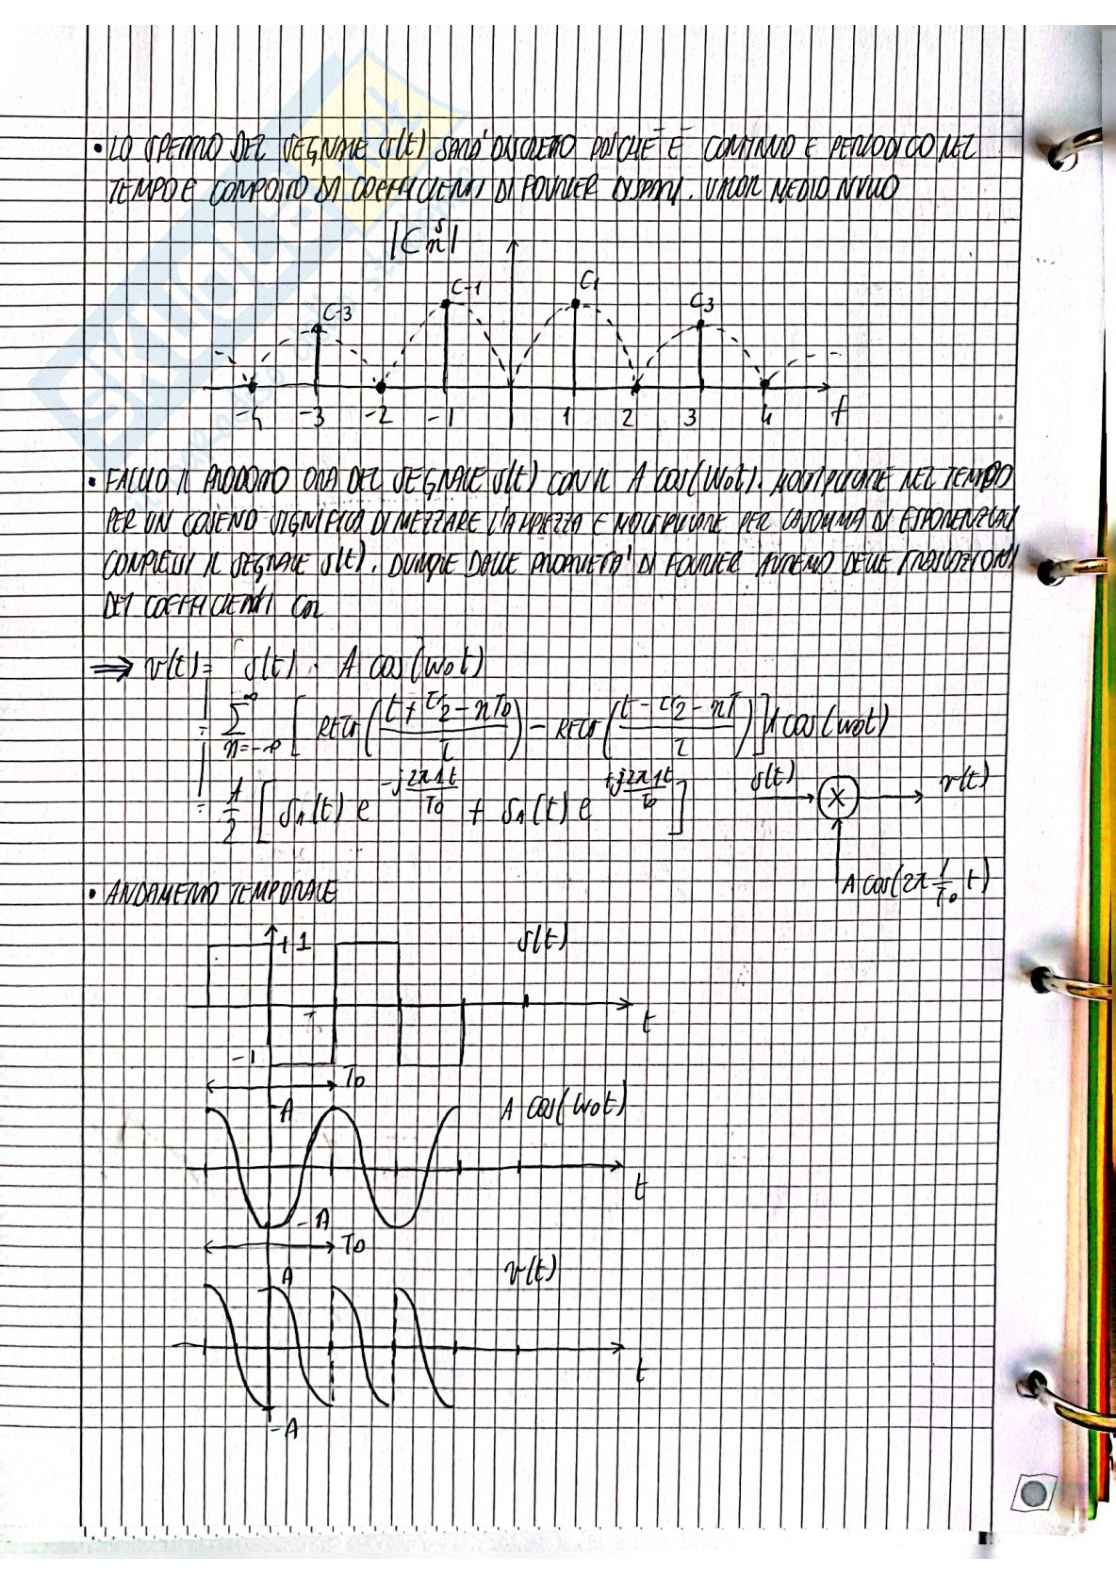 • LO SPETTRO DEL SEGNALE s(t) SARÀ DISCRETO POICHÈ È CONTINUO E PERIODICO NEL
TEMPO E COMPOSTO DA COEFFICIENTI DI FOURIER DISPARI. VALOR MEDIO NULLO
|C_n^s|
C-3 C-1 C1 C3
-4 -3 -2 -1 1 2 3 4 f
• FACCIO IL PRODOTTO ORA DEL SEGNALE s(t) CON IL A cos(W0t). MOLTIPLICARE NEL TEMPO
PER UN COSENO SIGNIFICA DIMEZZARE L'AMPIEZZA E MOLTIPLICARE PER LA SOMMA DI ESPONENZIALI
COMPLESSI IL SEGNALE s(t). DUNQUE DALLE PROPRIETÀ DI FOURIER AVREMO DELLE TRASLAZIONI
DEI COEFFICIENTI Cn
⇒ v(t) = s(t) · A cos(w0t)
= ∑_{n=-∞}^{∞} [RECT((t+τ/2-nT0)/τ) - RECT((t-τ/2-nT)/τ)] A cos(w0t)
= A/2 [s_n(t) e^{-j2π1t/T0} + s_n(t) e^{+j2π1t/T0}]
s(t) × v(t)
A cos(2π 1/T0 t)
• ANDAMENTO TEMPORALE
+1 s(t)
t
-1
T0
A A cos(w0t)
t
-A
T0
A v(t)
t
-A
SKUOLA